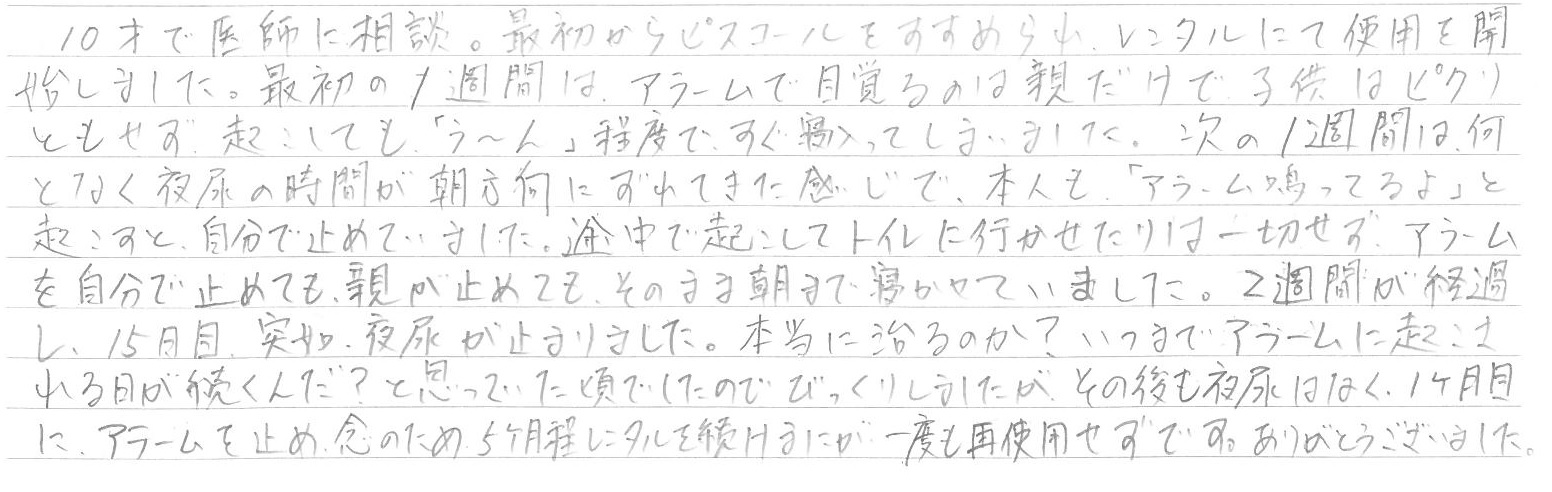 10才で医師に相談。最初からピスコールをすすめられ、レンタルにて使用を開
始しました。最初の1週間は、アラームで目覚るのは親だけで、子供はピクリ
ともせず、起こしても、「う〜ん」程度で、すぐ寝入ってしまいました。次の1週間は、何
となく夜尿の時間が朝方向にずれてきた感じで、本人も、「アラーム鳴ってるよ」と
起こすと、自分で止めていました。途中で起こしてトイレに行かせたりは一切せず、アラーム
を自分で止めても、親が止めても、そのまま朝まで寝かせていました。2週間が経過
し、15日目、突如、夜尿が止まりました。本当に治るのか?いつまでアラームに起こさ
れる日が続くんだ?と思っていた頃でしたのでびっくりしましたが、その後も夜尿はなく、1ケ月目
に、アラームを止め、念のため、5ケ月程レンタルを続けましたが、一度も再使用せずです。ありがとうございました。